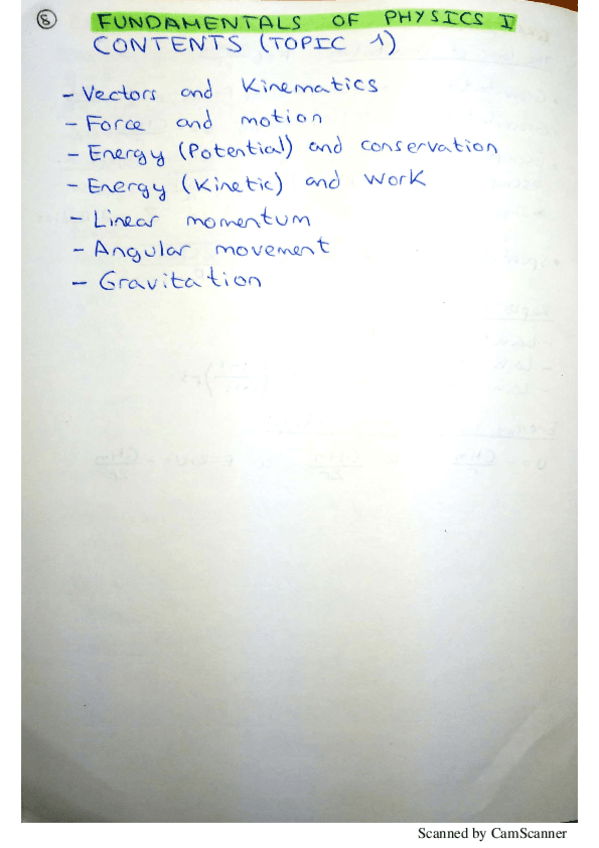 8
FUNDAMENTALS OF PHYSICS I
CONTENTS (TOPIC 1)
- Vectors and Kinematics
- Force and motion
- Energy (Potential) and conservation
- Energy (Kinetic) and work
- Linear momentum
- Angular movement
- Gravitation
Scanned by CamScanner